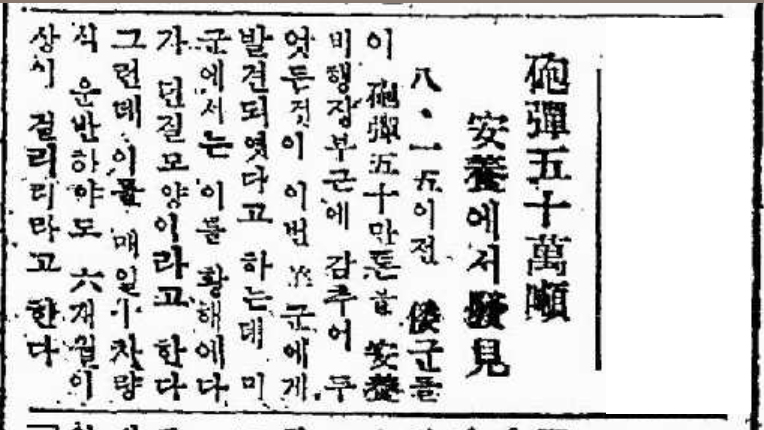 砲彈五十萬噸
安養에서發見
八·一五이전 倭군들
이 砲彈五十만톤을 安養
비행장부근에 감추어 두
엇든것이 이번 美군에게
발견되엿다고 하는데 미
군에서는 이를 황해에다
가 던질모양이라고 한다
그런데 이를 매일 차량
식 운반하야도 六개월이
상이 걸리리라고 한다